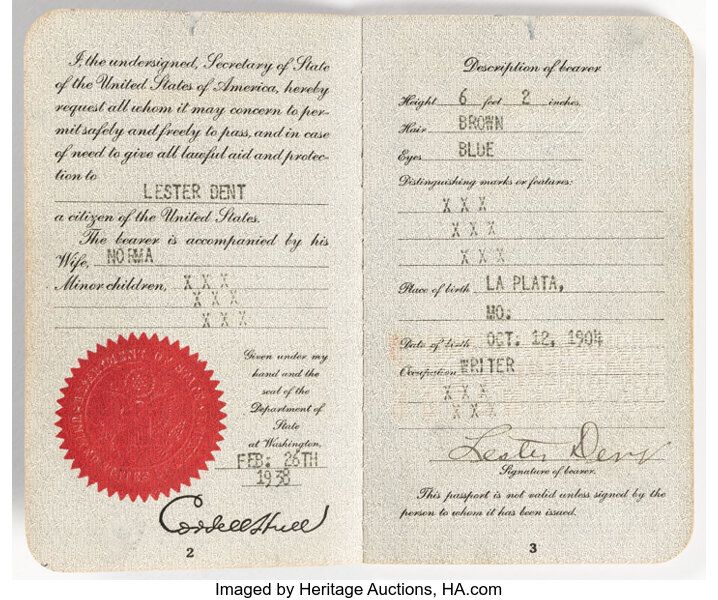 I, the undersigned, Secretary of State
of the United States of America, hereby
request all whom it may concern to per-
mit safely and freely to pass, and in case
of need to give all lawful aid and protec-
tion to
LESTER DENT
a citizen of the United States.
The bearer is accompanied by his
Wife, NORMA
Minor children, X X X
X X X
X X X
Given under my
hand and the
seal of the
Department of
State
at Washington,
FEB. 26TH
1938
Cordell Hull
2
Description of bearer
Height 6 feet 2 inches.
Hair BROWN
Eyes BLUE
Distinguishing marks or features:
X X X
X X X
X X X
Place of birth LA PLATA,
MO.
Date of birth OCT. 12, 1904
Occupation WRITER
X X X
X X X
Lester Dent
Signature of bearer.
This passport is not valid unless signed by the
person to whom it has been issued.
3
Imaged by Heritage Auctions, HA.com